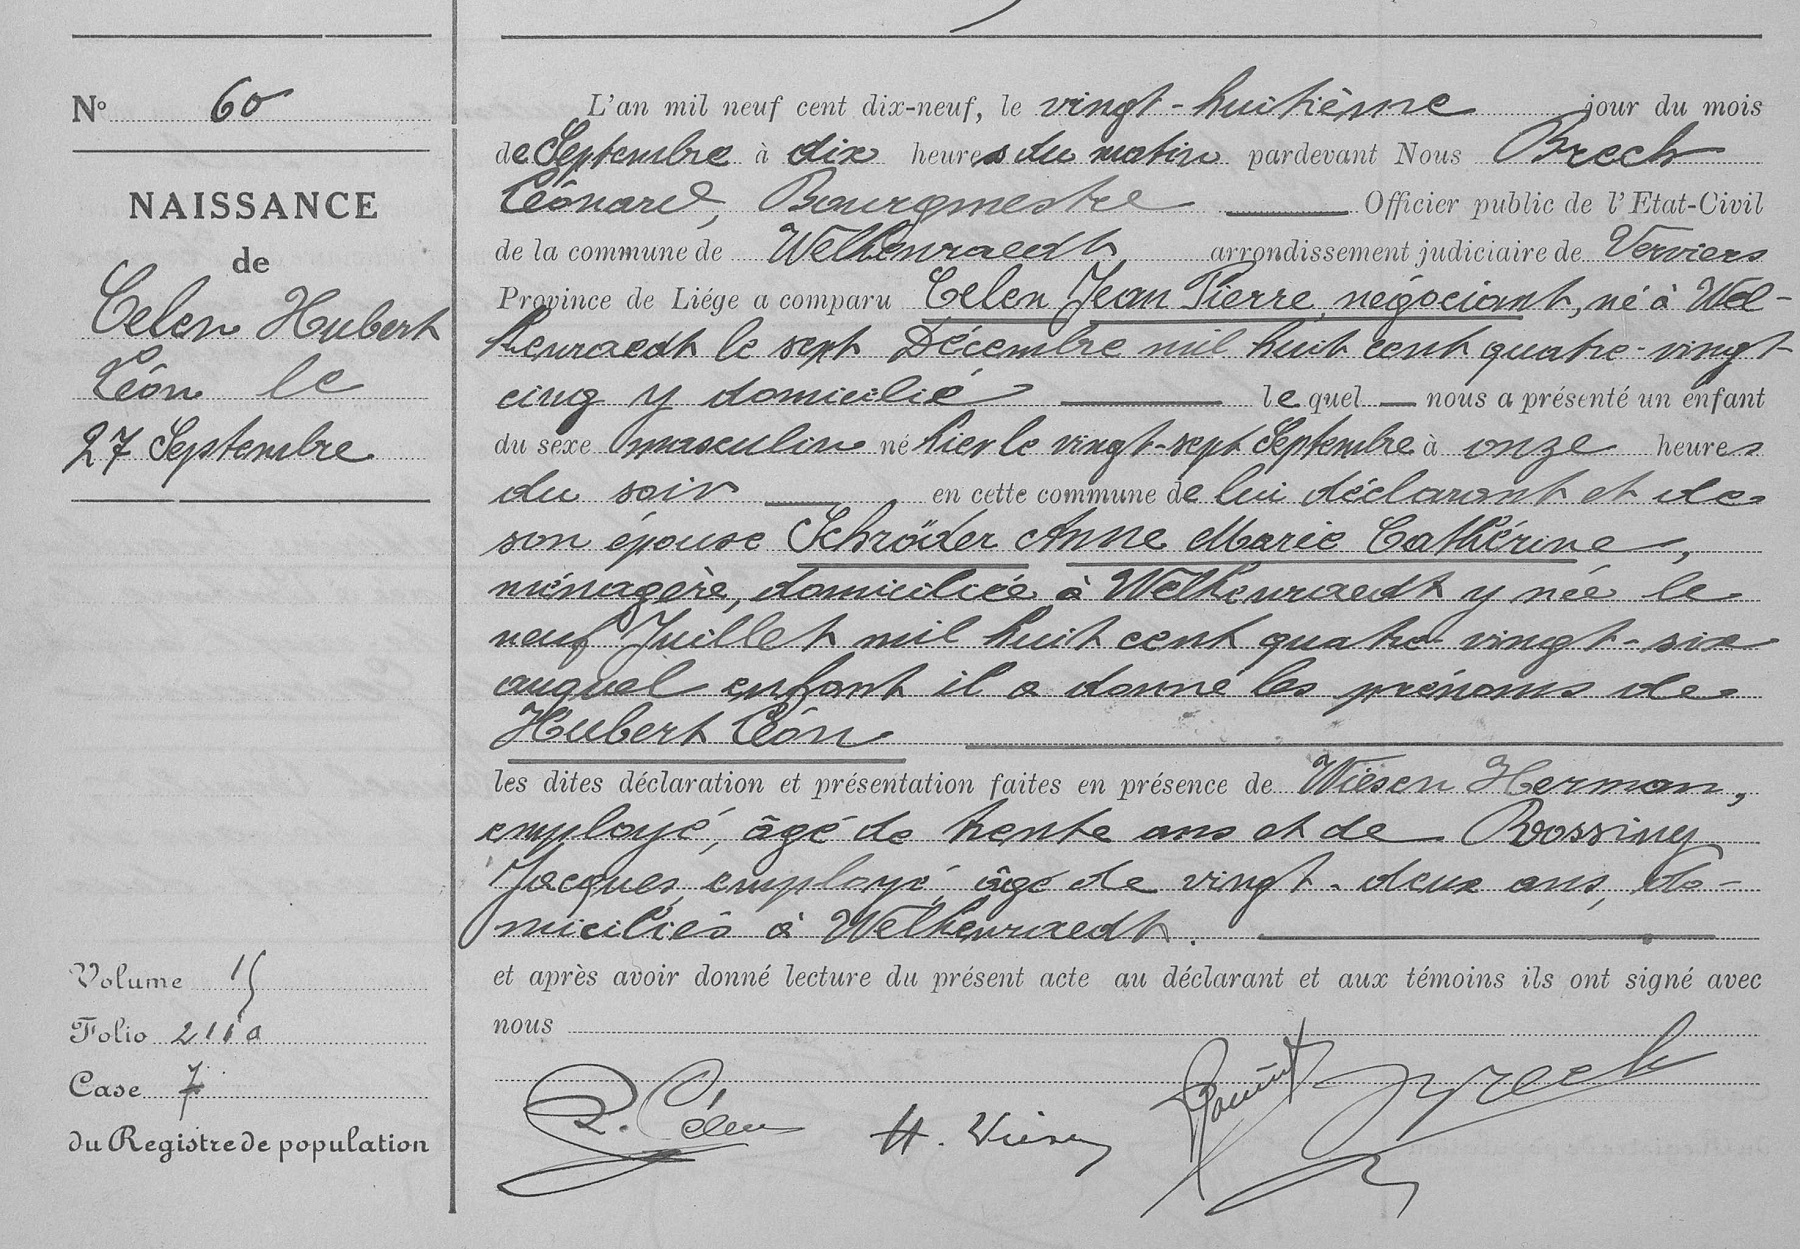 N° 60
NAISSANCE
de
Celen Hubert
Léon le
27 Septembre
Volume 15
Folio 211a
Case 7
du Registre de population
L'an mil neuf cent dix-neuf, le vingt-huitième jour du mois
de Septembre à dix heures du matin pardevant Nous Brech
Léonard, Bourgmestre Officier public de l'Etat-Civil
de la commune de Welkenraedt arrondissement judiciaire de Verviers
Province de Liége a comparu Celen Jean Pierre, négociant, né à Wel-
kenraedt le sept Décembre mil huit cent quatre-vingt-
cinq y domicilié le quel nous a présenté un enfant
du sexe masculin né hier le vingt-sept Septembre à onze heures
du soir en cette commune de lui déclarant et de
son épouse Schröder Anne Marie Cathérine,
ménagère, domiciliée à Welkenraedt y née le
neuf Juillet mil huit cent quatre-vingt-six
auquel enfant il a donné les prénoms de
Hubert Léon
les dites déclaration et présentation faites en présence de Wiesen Herman,
employé, âgé de trente ans et de Rossiny
Jacques, employé, âgé de vingt-deux ans, do-
miciliés à Welkenraedt.
et après avoir donné lecture du présent acte au déclarant et aux témoins ils ont signé avec
nous
P. Célen H. Wiesen Brech